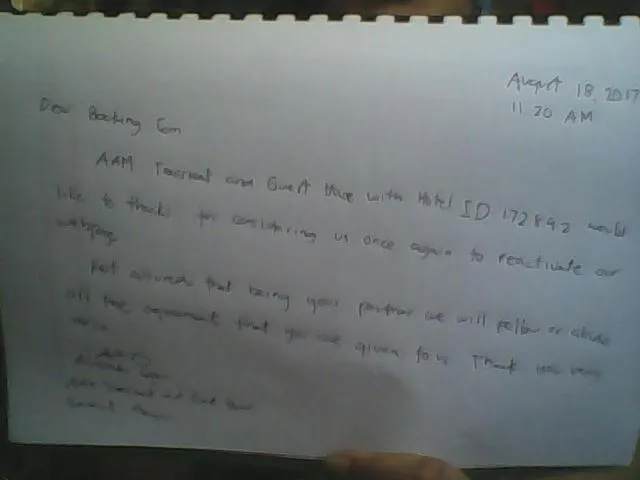 August 18, 2017
11 20 AM
Dear Booking Com
AAM Transient and Guest House with Hotel ID 172892 would
like to thanks for considering us once again to reactivate our
webpage
Rest assured that being your partner we will follow or abide
all the agreement that you are given to us Thank you very